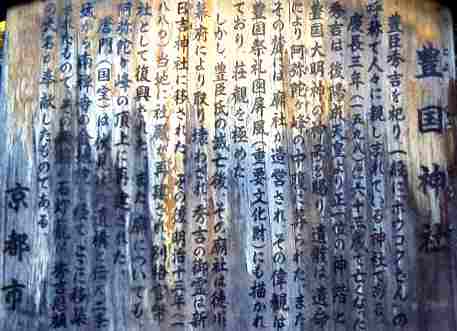 豊国神社
豊臣秀吉を祀り、一般に「ホウコクさん」の
呼称で人々に親しまれている神社である。
慶長三年(一五九八)に六十三歳で亡くなった
秀吉は、後陽成天皇より正一位の神階と
豊国大明神の神号を賜り、遺骸は、遺命
により阿弥陀ヶ峰の中腹に葬られた。また、
その麓には廟社が造営され、その偉観は
豊国祭礼図屏風(重要文化財)にも描かれ
ており、荘観を極めた。
しかし、豊臣氏の滅亡後、その廟社は徳川
幕府により取り壊わされ、秀吉の御霊は新
日吉神社に移された。その後、明治十三年(一
八八〇)、当地に社殿が再建され、別格官幣
社として復興された。また、廟についても、
阿弥陀ヶ峰の頂上に再建された。
唐門(国宝)は伏見城の遺構と伝え、二条
城から南禅寺の金地院を経てここに移築
されたもので、その
の大名が奉献したものである。
京都市